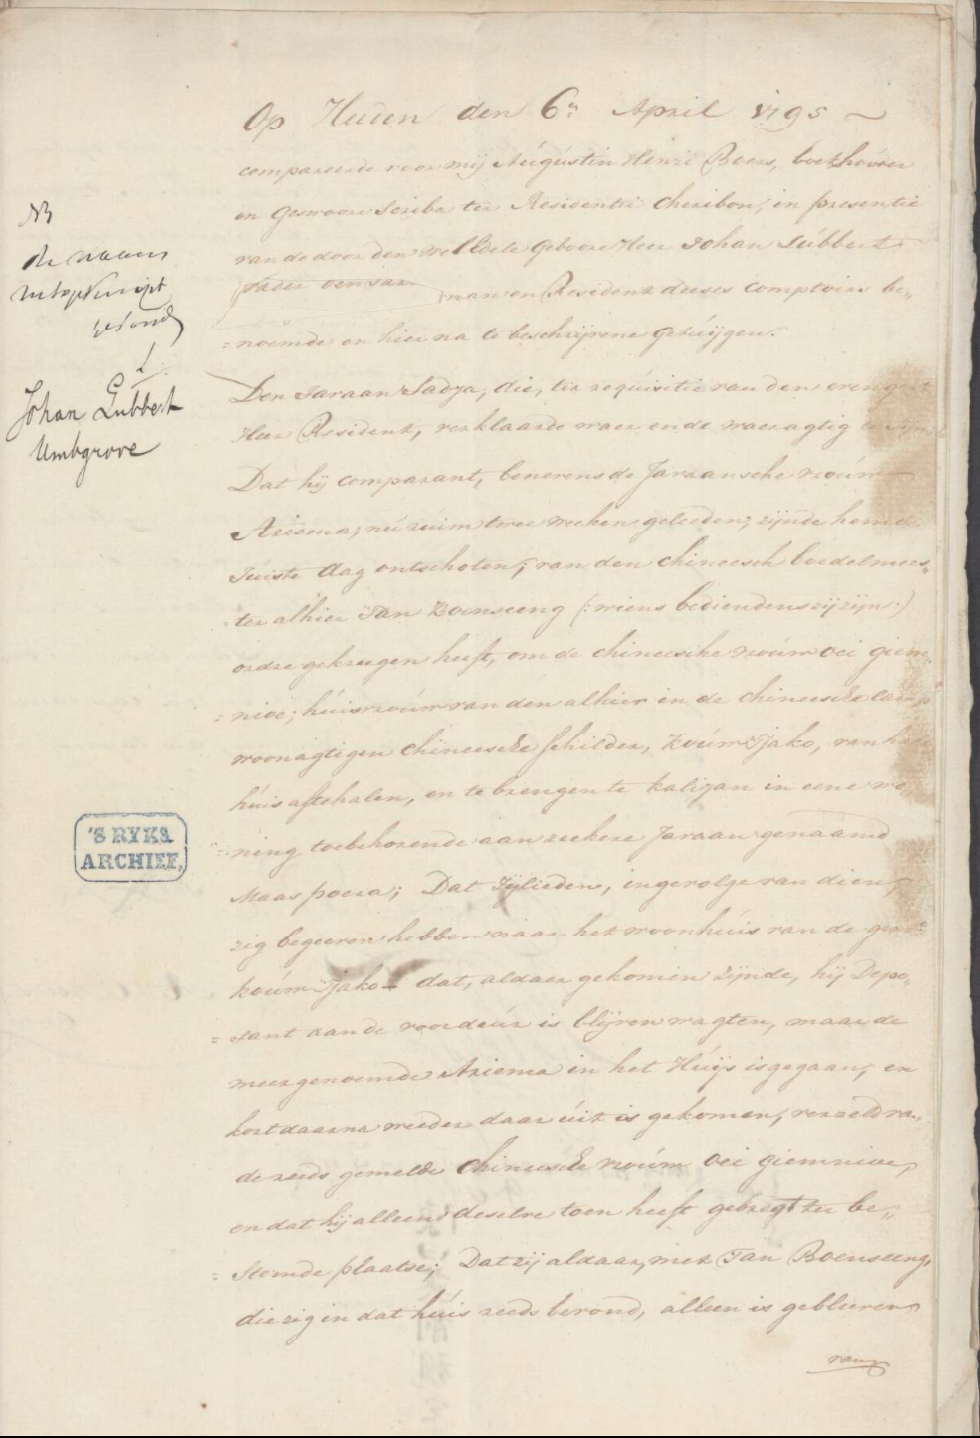 Op Heeden den 6:n April 1795 ~
compareerde voor mij Augustin Henri Boers, boekhouder
en Geswoore Scriba ter Residentie Cheribon, in presentie
van de door den wel Edele Geboore Heer Johan Lubbert
man en Resident deeses Comptoirs be„
„noemde en hier na te beschrijvene getuijgen.
NB
de naam
Johan Lubbert
Umbgrove
Den Javaan Sadja, die, ter requisitie van den even
Heer Resident, verklaarde waer en de waeragtig te zijn,
Dat hij Comparant, benevens de Javaansche vrouw
Ariema, nu ruim twee weeken geleeden, zijnde hem de
Juiste dag ontschoten, van den Chineesch boedelmees„
„ter alhier Tan Boenseeng (: wiens bediendens zij zijn :)
ordre gekreegen heeft, om de Chineesche vrouw Oei Giem„
„nioe, huisvrouw van den alhier in de Chineesche Camp
woonagtigen Chineesche schilder, Kouw Tjako, van haar
huis afte halen, en te brengen te Kalijan in eene wo„
„ning toebehorende aan zeekere Javaan genaamd
Maas poera; Dat Zijlieden, ingevolge van dien,
zig begeeven hebben naar het woonhuis van de gem:
Kouw Tjako dat, aldaar gekomen zijnde, hij Depo„
„sant aan de voordeur is blijven wagten, maar de
meergenoemde Ariema in het Huijs is gegaan, en
kort daarna weeder daar uit is gekomen, verzeld van
de reeds gemelde Chineesche vrouw Oei Giemnioe,
en dat hij alleen deselve toen heeft gebragt ter be„
„stemde plaatse; Dat zij aldaar, met Tan Boenseeng,
die zig in dat huis reeds bevond, alleen is gebleeven
van
'S RYKS
ARCHIEF,